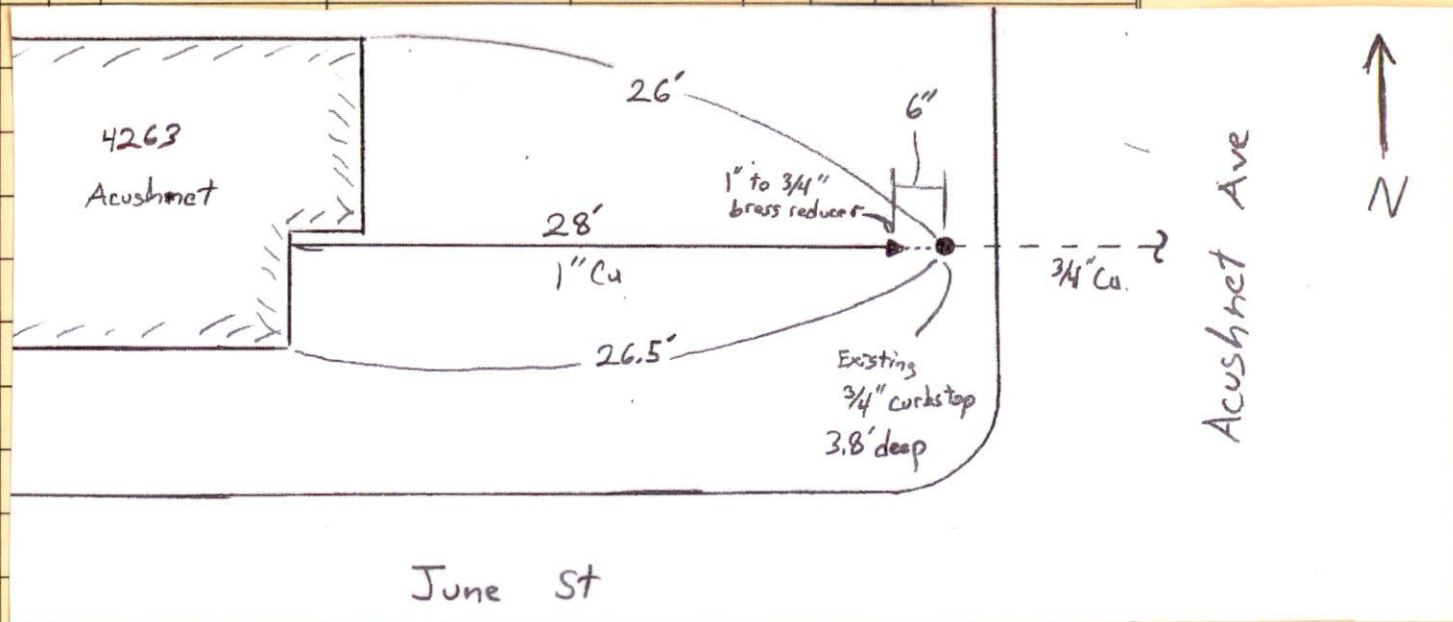 26'
6"
4263
Acushmet
1" to 3/4"
brass reducer
28'
1" Cu
3/4" Cu.
26.5'
Existing
3/4" curbstop
3.8' deep
Acushnet Ave
N
June St